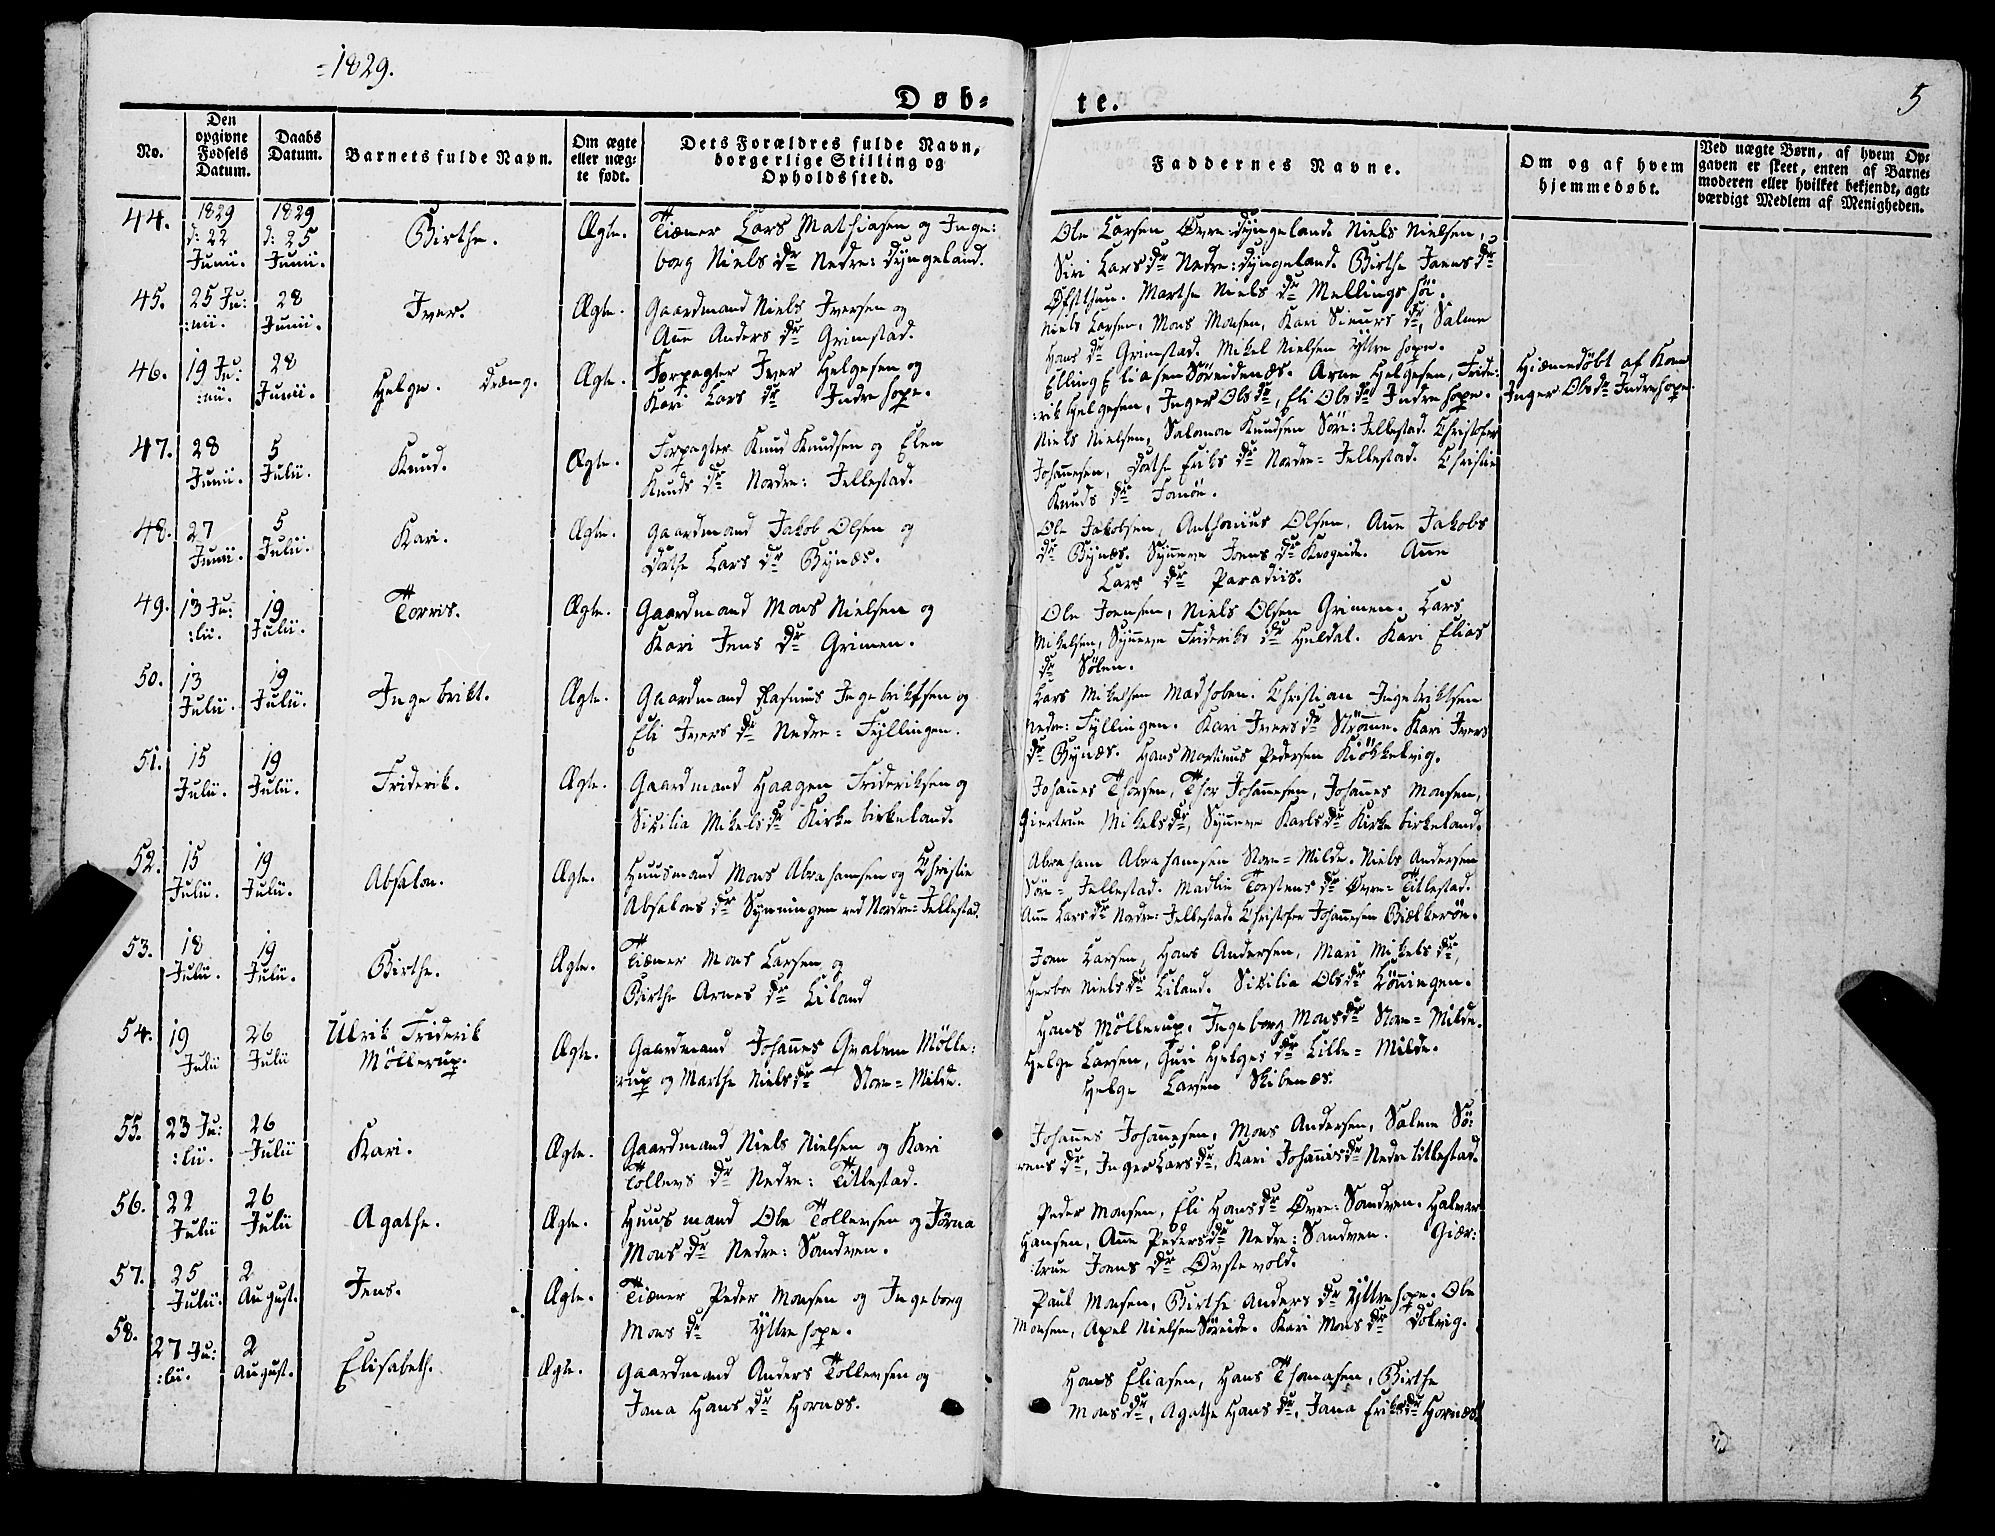 1829.
Døb-
te.
5
No.
Den opgivne Fødsels Datum.
Daabs Datum.
Barnets fulde Navn.
Om ægte eller uæg-te født.
Dets Forældres fulde Navn, borgerlige Stilling og Opholdssted.
Faddernes Navne.
Om og af hvem hjemmedøbt.
Ved uægte Børn, af hvem Op-gaven er skeet, enten af Barne-moderen eller hvilket bekjendt, agt-værdigt Medlem af Menigheden.
44.
1829 d: 22 Junii.
1829 d: 25 Junii.
Birthe.
Ægte.
Tiæner Lars Mathiasen og Inge:
borg Niels dr Nedre: Dyngeland.
Ole Larsen Øvre Dyngeland. Niels Nielsen,
Siri Lars dr Nedre: Dyngeland. Birthe Joensdr
Marthe Niels dr Mellings høi.
45.
25 Ju:
:nii.
28
Junii.
Iver.
Ægte.
Gaardmand Niels Iversen og
Ane Anders dr Grimstad.
Niels Larsen, Mons Monsen, Kari Siurs dr, Salme
Hans dr Grimstad. Mikel Nielsen Yttre hope.
46.
19 Ju:
:nii.
28
Junii.
Helge. Dræng.
Ægte.
Forpagter Iver Helgesen og
Kari Lars dr Indre hope.
Elling Eliasen Søreidenæs. Arne Helgesen, Fride:
:rik Helgesen, Inger Ols dr, Eli Ols dr Indre hope.
Hiæmedøbt af Kone
Inger Ols dr Indrehope.
47.
28
Junii.
5
Julii.
Knud.
Ægte.
Forpagter Knud Knudsen og Elen
Knuds dr Nordre: Jellestad.
Niels Nielsen, Salamon Knudsen Søre: Jellestad. Christofer
Johanesen, Dorthe Eriks dr Nordre= Jellestad. Christie
Knuds dr
48.
27
Junii.
5
Julii.
Kari.
Ægte.
Gaardmand Jakob Olsen og
Dorthe Lars dr Bynæs.
Ole Jakobsen, Anthonius Olsen, Ane Jakobs
dr Bynæs. Syneve Joens dr Krogeide. Ane
Lars dr Paradiis.
49.
13 Ju:
:lii.
19
Julii.
Torris.
Ægte.
Gaardmand Mons Nielsen og
Kari Jens dr Grimen.
Ole Joensen, Niels Olsen Grimen. Lars
Mikelsen, Syneve Frideriks dr Heldal. Kari Elias
dr Sølen.
50.
13
Julii.
19
Julii.
Ingebrikt.
Ægte.
Gaardmand Rasmus Ingebriktsen og
Eli Ivers dr Nedre= Fyllingen.
Lars Mikelsen Madhoben. Christian Ingebriktsen
Nedre: Fyllingen. Kari Ivers dr Strømme. Kari Ivers
dr Bynæs. Hans Martinus Pedersen Kiøkkelvig.
51.
15
Julii.
19
Julii.
Friderik.
Ægte.
Gaardmand Haagen Frideriksen og
Sisilia Mikels dr Kirke birkeland.
Johanes Thorsen, Thor Johanesen, Johanes Monsen,
Giertrue Mikelsdr, Syneve Karlsdr Kirke birkeland.
52.
15
Julii.
19
Julii.
Absalon.
Ægte.
Huusmand Mons Abrahamsen og Christie
Absalons dr Synningen ved Nordre= Jellestad.
Abraham Abrahamsen Store= Milde. Niels Andersen
Søre= Jellestad. Madlie Torstens dr Øvre= Titlestad.
Ane Lars dr Nedre: Jellestad. Christofer Johanesen Bielkerøen.
53.
18
Julii.
19
Julii.
Birthe.
Ægte.
Tiæner Mons Larsen og
Birthe Arnes dr Liland
Joen Larsen, Hans Andersen, Mari Mikels dr,
Herbor Niels dr Liland. Sisilia Ols dr Lønningen.
54.
19
Julii
26
Julii
Ulrik Friderik
Møllerup.
Ægte.
Gaardmand Johanes Gvalem Mølle:
:rup og Marthe Nielsdr Store= Milde.
Hans Møllerup, Ingeborg Mons dr Store= Milde.
Helge Larsen, Guri Helges dr Lille= Milde.
Helge Larsen Skibenæs.
55.
23 Ju:
:lii.
26
Julii
Kari.
Ægte.
Gaardmand Niels Nielsen og Kari
Tollevs dr Nedre: Titlestad.
Johanes Johanesen, Mons Andersen, Salme Sø:
rens dr, Inger Lars dr, Kari Johanis dr Nedre titlestad.
56.
22
Julii
26
Julii
Agathe.
Ægte.
Huusmand Ole Tollevsen og Jørna
Mons dr Nedre: Sandven.
Peder Monsen, Eli Hans dr Øvre: Sandven. Halver
Hansen, Ane Peders dr Nedre: Sandven. Giær:
:true Joens dr Øvstevold.
57.
25
Julii.
2
August.
Jens.
Ægte.
Tiæner Peder Monsen og Ingeborg
Mons dr Yttre hope.
Paul Monsen, Birthe Anders dr Yttre hope. Ole
Monsen, Axel Nielsen Søreide. Kari Mons dr Dolvig.
58.
27 Ju:
:lii.
2
August.
Elisabeth.
Ægte.
Gaardmand Anders Tollevsen og
Jana Hans dr Hornæs.
Hans Eliasen, Hans Thomasen, Birthe
Mons dr, Agathe Hans dr, Jana Eriks dr Hornæs.